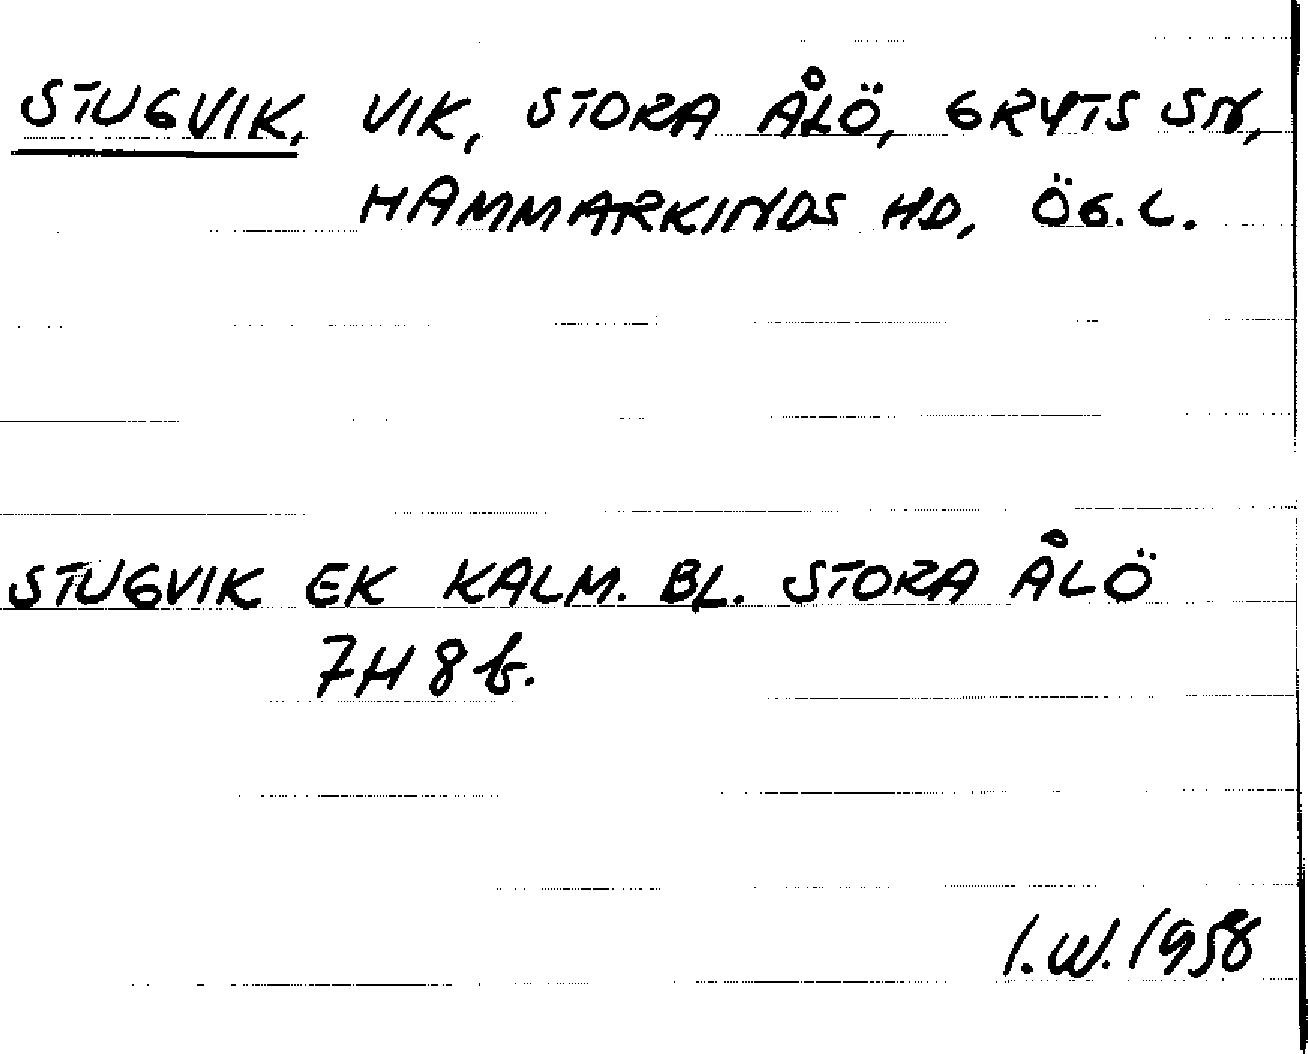 STUGVIK, VIK, STORA ÅLÖ, GRYTS SN,
HAMMARKINDS HD, ÖG.L.
STUGVIK EK KALM. BL. STORA ÅLÖ
7H 8b.
I.W. 1958